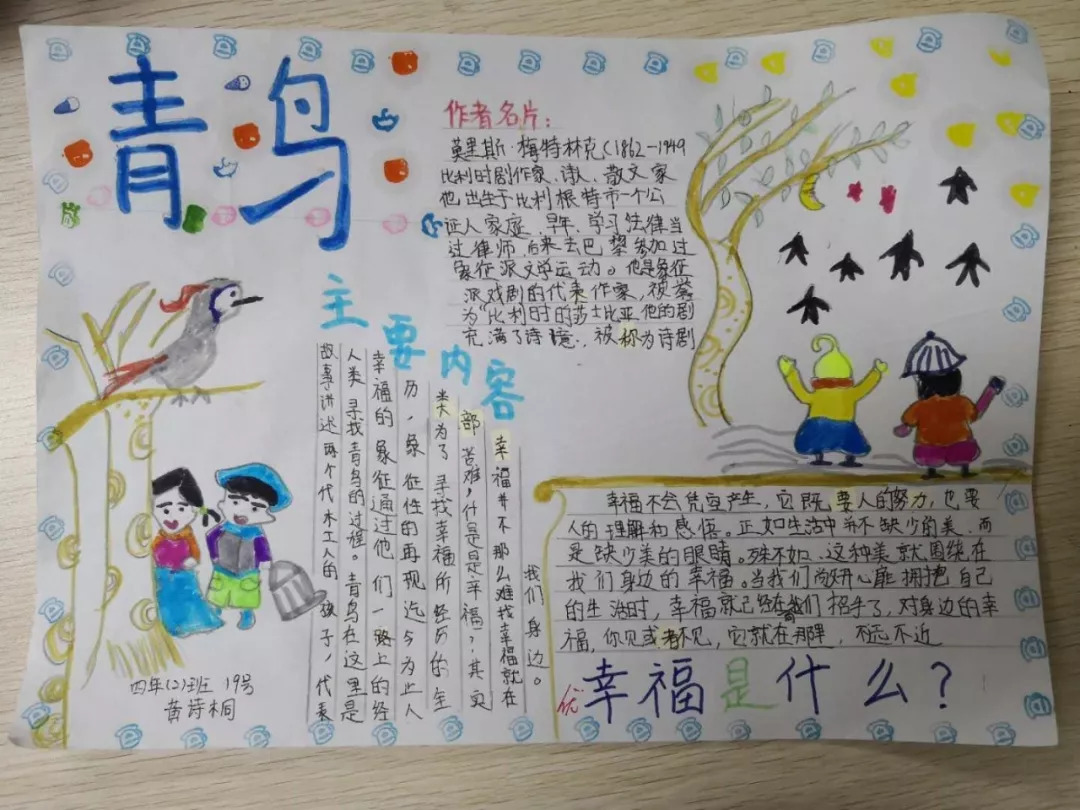 青鸟
作者名片：
莫里斯·梅特林克（1862－1949
比利时剧作家、诗、散文家
他出生于比利根特市一个公
证人家庭，早年，学习法律当
过律师，后来去巴黎参加过
象征派文学运动。他是象征
派戏剧的代表作家，被誉
为"比利时的莎士比亚，他的剧
充满了诗意，被称为诗剧
主要内容
故事讲述两个代木工人的孩子，代表
人类寻找青鸟的过程。青鸟在这里是
幸福的象征通过他们一路上的经
历，象征性的再现迄今为止人
类为了寻找幸福所经历的全
部苦难，什是是幸福？，其实
幸福并不那么难找幸福就在
我们身边。
幸福不会凭空产生，它既要人的努力，也要
人的理解和感悟。正如生活中并不缺少的美，而
是缺少美的眼睛。殊不如、这种美就围绕在
我们身边的幸福。当我们尚好心能拥抱自己
的生活时，幸福就已经在我们招手了，对身边的幸
福，你见或者不见，它就在那里，不远不近
优
幸福是什么？
四年(2)班 19号
黄诗桐